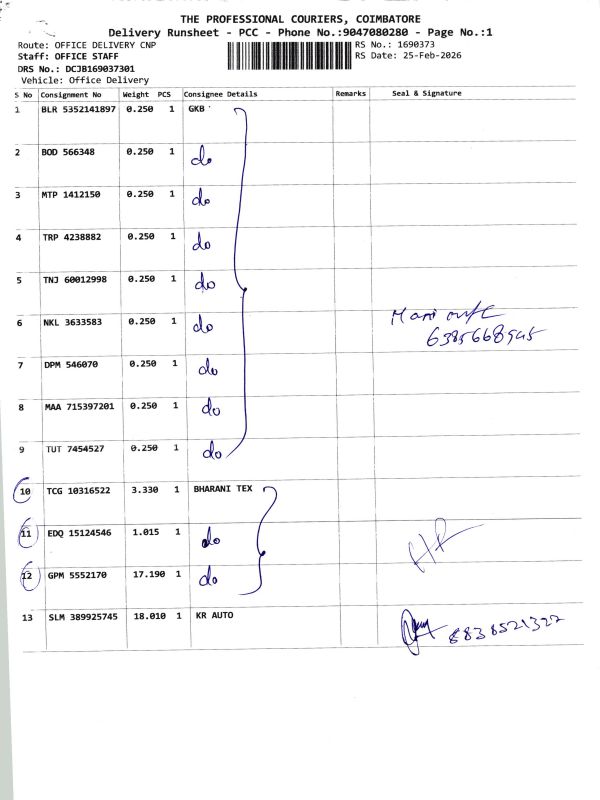 THE PROFESSIONAL COURIERS, COIMBATORE
Delivery Runsheet - PCC - Phone No.:9047080280 - Page No.:1
Route: OFFICE DELIVERY CNP RS No.: 1690373
Staff: OFFICE STAFF RS Date: 25-Feb-2026
DRS No.: DCJB169037301
Vehicle: Office Delivery
S No Consignment No Weight PCS Consignee Details Remarks Seal & Signature
1 BLR 5352141897 0.250 1 GKB
2 BOD 566348 0.250 1 do
3 MTP 1412150 0.250 1 do
4 TRP 4238882 0.250 1 do
5 TNJ 60012998 0.250 1 do
6 NKL 3633583 0.250 1 do
7 DPM 546070 0.250 1 do
8 MAA 715397201 0.250 1 do
9 TUT 7454527 0.250 1 do
10 TCG 10316522 3.330 1 BHARANI TEX
11 EDQ 15124546 1.015 1 do
12 GPM 5552170 17.190 1 do
13 SLM 389925745 18.010 1 KR AUTO
8838521322